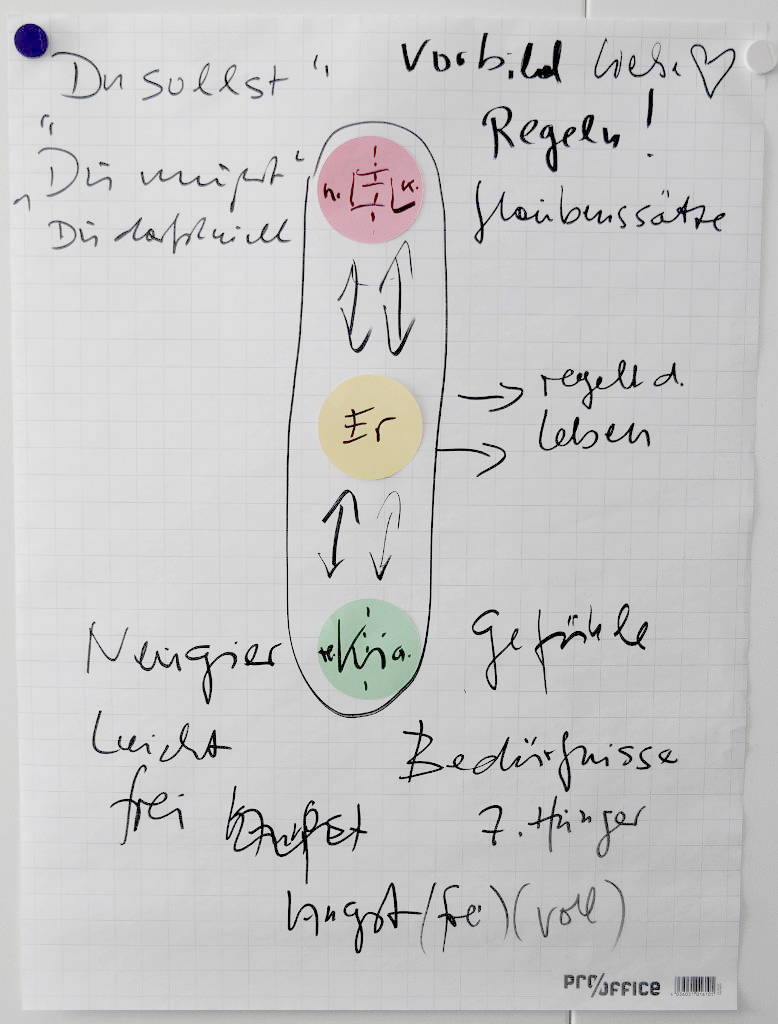 "Du sollst"
Vorbild Liebe ♡
Regeln!
"Du musst"
"Du darfst nicht
Glaubenssätze
K. EL K.
regelt d.
Leben
Er
Neugier
Gefühle
Leicht
Bedürfnisse
frei
7. Hünger
Angst (frei) (voll)
PRO/OFFICE